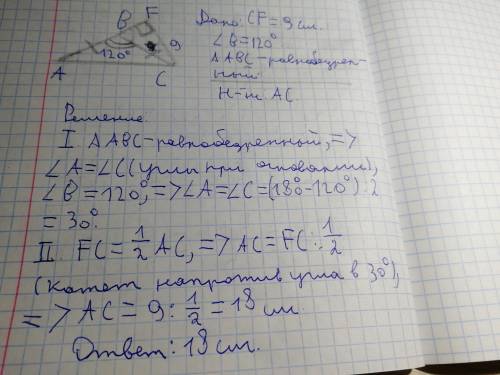 B F
Дано: CF = 9 см.
9
∠B = 120°
120°
ΔABC - равнобедрен-
ный
A C
Н-ти AC
Решение
I ΔABC - равнобедренный, =>
∠A = ∠C (углы при основании),
∠B = 120°, => ∠A = ∠C = (180° - 120°) : 2
= 30°.
II. FC = 1/2 AC, => AC = FC : 1/2
(Катет напротив угла в 30°),
=> AC = 9 : 1/2 = 18 см.
Ответ: 18 см.